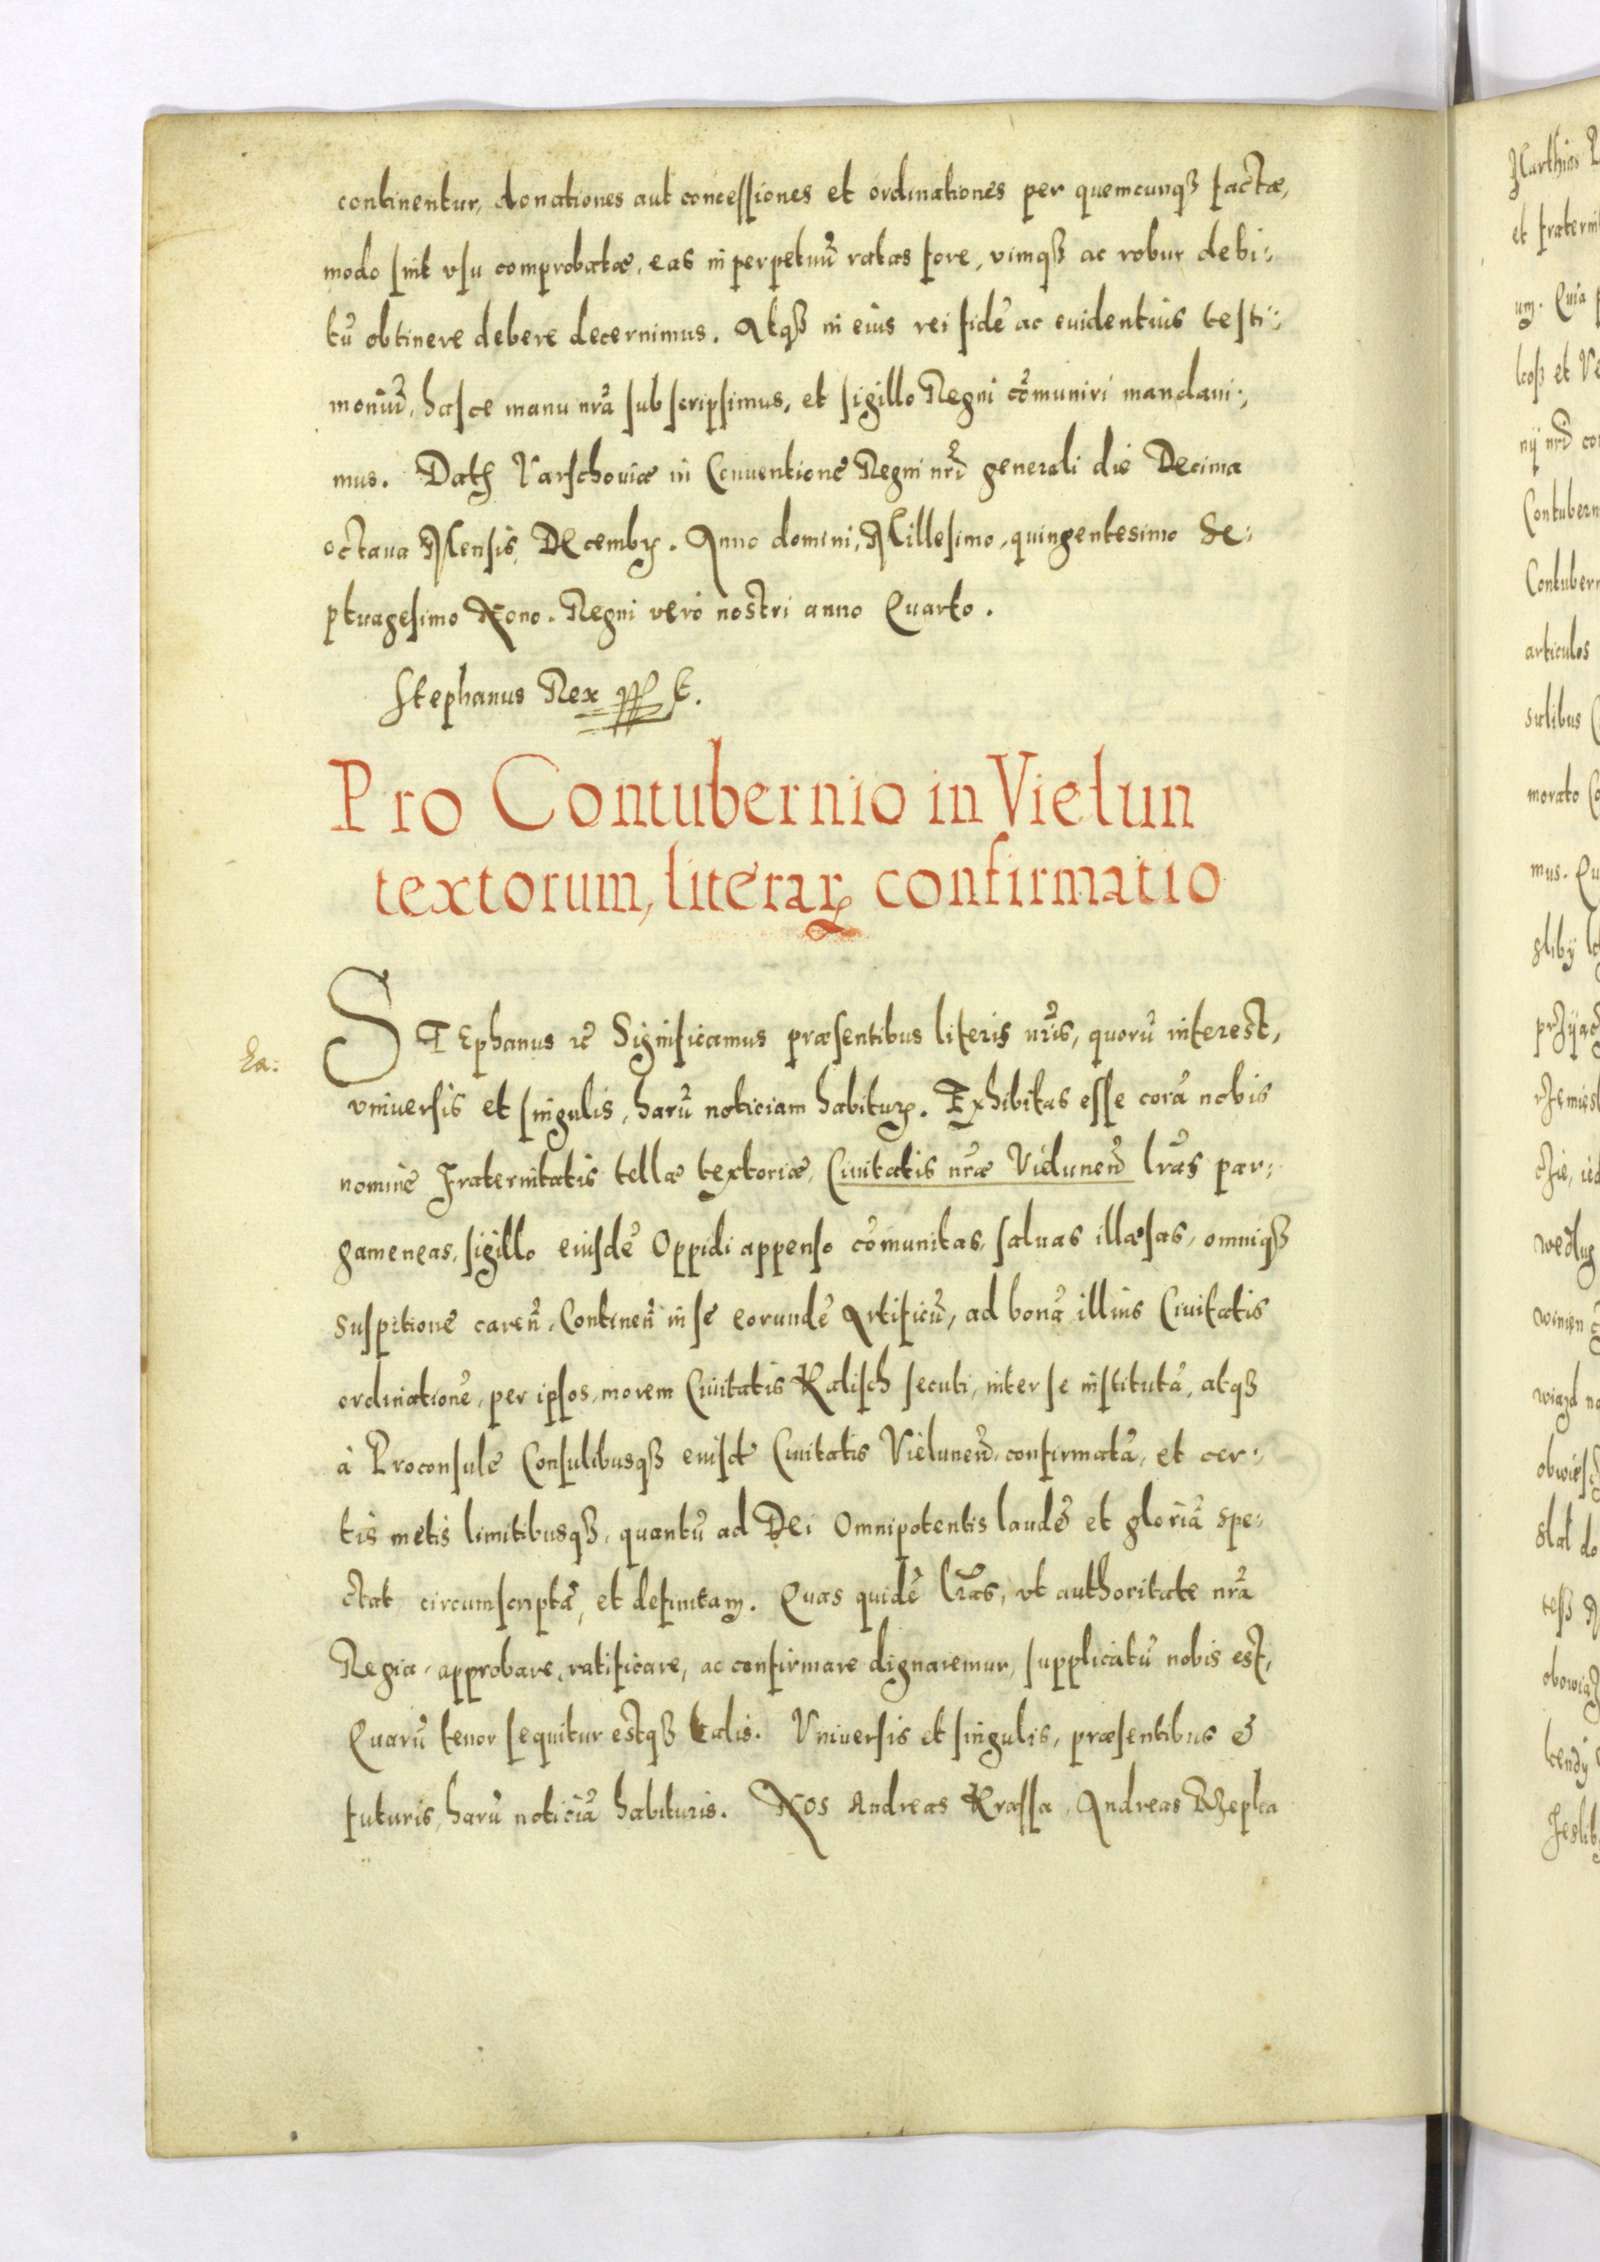 continentur, donationes aut concessiones et ordinationes per quemcunqꝫ factæ,
modo sint vsu comprobatæ, eas in perpetuũ ratas fore, vimqꝫ ac robur debi-
tũ obtinere debere decernimus. Atqꝫ in eius rei fidẽ ac euidentius testi-
moniũ, hasce manu nrã subscripsimus, et sigillo Regni cõmuniri mandaui-
mus. Datȝ Varschouiæ in Conuentione Regni nrĩ generali die Decima
octaua Mensis Decembꝝ. Anno domini, Millesimo, quingentesimo Se-
ptuagesimo Nono. Regni vero nostri anno Quarto.
Stephanus Rex
Pro Contubernio in Vielun
textorum, literaꝝ confirmatio
Ea:
STEphanus ꝛc̃ Significamus præsentibus literis nrĩs, quorũ interest,
vniuersis et singulis, harũ noticiam habituꝝ. Exhibitas esse corã nobis
nomine Fraternitatis tellæ textoriæ, Ciuitatis nræ̃ Vielunen̄ lrãs par-
gameneas, sigillo eiusdẽ Oppidi appenso cõmunitas, saluas illæsas, omniqꝫ
suspitione caren̄, Continen̄ in se eorundẽ Artificũ, ad bonã illius Ciuitatis
ordinationẽ, per ipsos, morem Ciuitatis Kalisch secuti, inter se institutã, atqꝫ
à Proconsule Consulibusqꝫ eiusd̃ Ciuitatis Vielunen̄ confirmatã, et cer-
tis metis limitibusqꝫ, quantũ ad Dei Omnipotentis laudẽ et gloriã spe-
ctat circumscriptã, et definitam. Quas quidẽ lrãs, vt authoritate nrã
Regia, approbare, ratificare, ac confirmare dignaremur, supplicatũ nobis est,
Quarũ tenor sequitur estqꝫ talis. Vniuersis et singulis, præsentibus &
futuris, harũ noticiã habituris. Nos Andreas Krassa, Andreas Rzepka